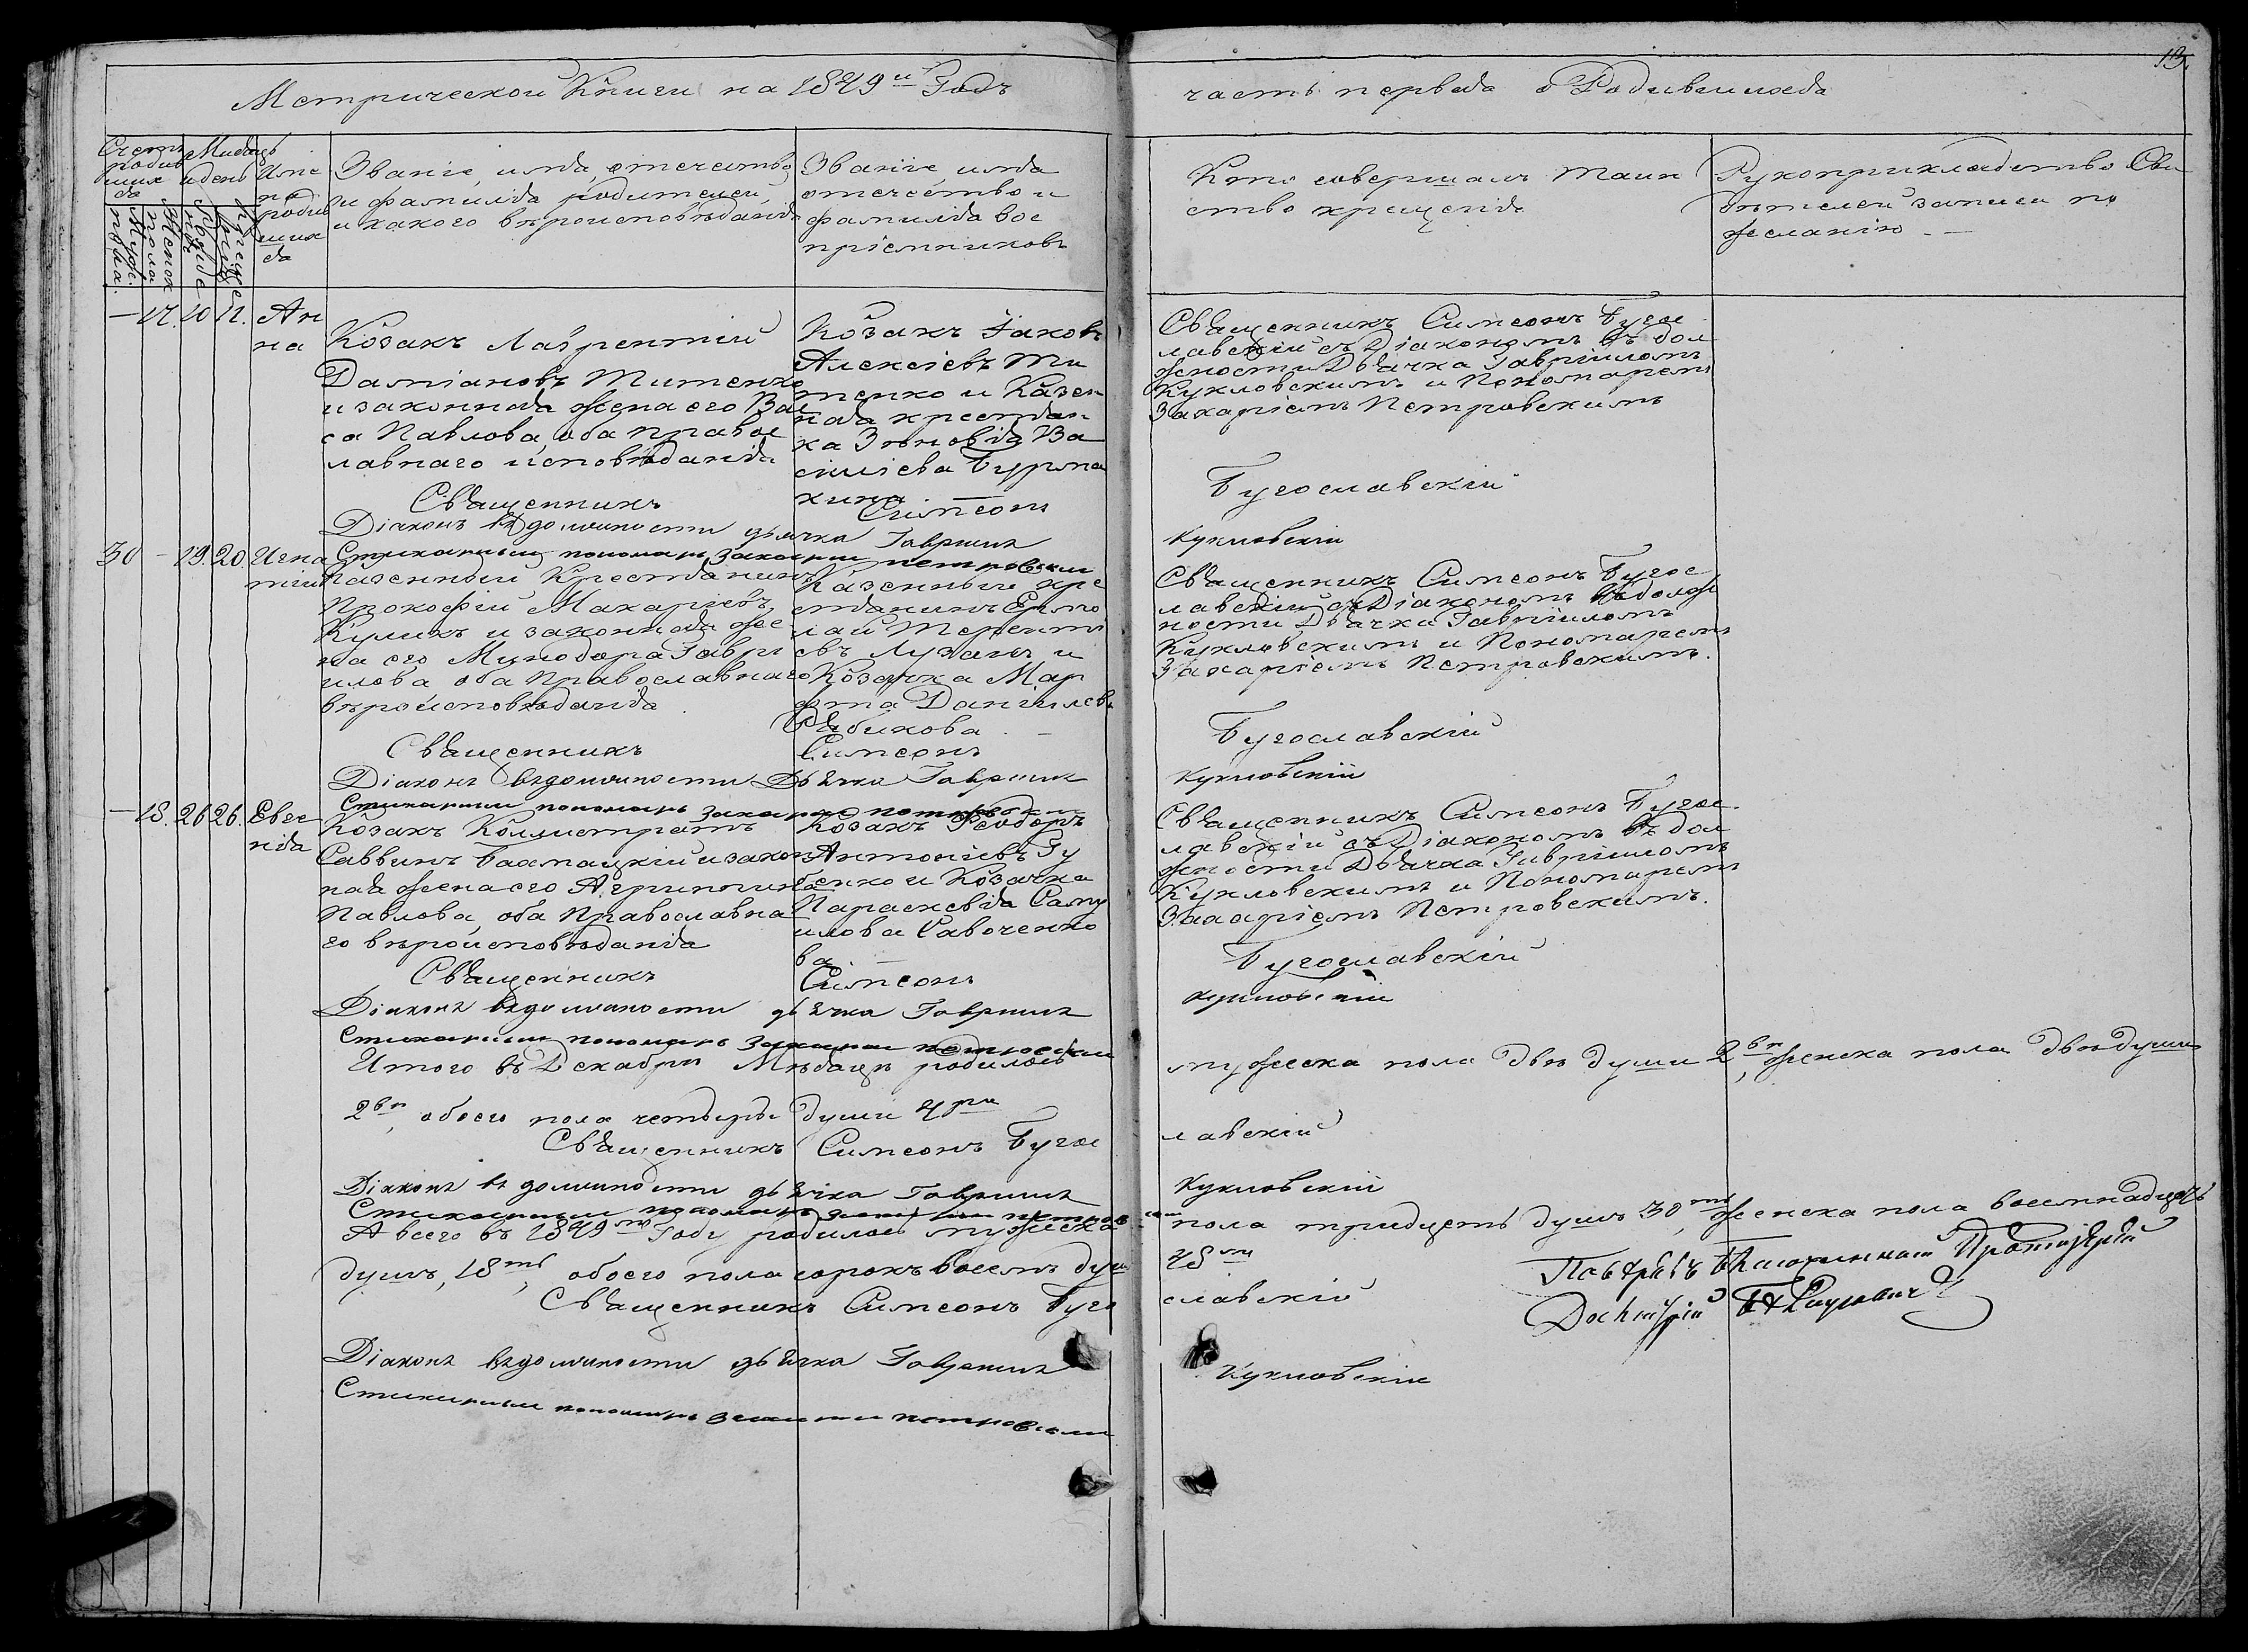 13.
Метрической Книги на 1849й Годъ
часть первая о Родившихся
Счетъ
родив
шихся
Мужск. пола.
Женск пола
Месяцъ
и день
Рожденія
Крещенія
Име
на
родив
шихся
Званіе, имя, отечество
и фамилія родителей,
и какого вѣроисповѣданія
Званіе, имя
отечество и
фамилія вос
пріемниковъ
Кто совершалъ Таин
ство крещенія
Рукоприкладство Сви
дѣтелей записи по
желанію
— 17. 10 11. Ан
на
Козакъ Лаѵрентій
Даміановъ Титенко
и законная жена его Вас
са Павлова, оба правос
лавнаго исповѣданія
Козакъ Іаковъ
Алексіевъ Ти
тенко и Казен
ная крестьян
ка Зѣновія Ва
сіліева Бурма
кина.
Священникъ Симеонъ Бугос
лавскій съ Діакономъ въ дол
жности Дьячка Гавріиломъ
Кукловскимъ и Пономаремъ
Захаріемъ Петровскимъ
Священникъ Симеонъ Бугославскій
Діаконъ въ должности дьячка Гавриилъ Кукловскій
Стихарный пономарь Захарий Петровский
30 — 19. 20. Игна
тій
Казенный Крестьянинъ
Прокофій Макаріевъ
Куликъ и законная же
на его Минодора Гаврі
илова оба Православнаго
вѣроисповѣданія
Казенный кре
стьянинъ Ермо
лай Теренті
евъ Лузанъ и
Козачка Мар
фа Даніилева
Рябикова.
Священникъ Симеонъ Бугос
лавскій съ Діакономъ въ долж
ности Дьячка Гавріиломъ
Кукловскимъ и Пономаремъ
Захаріемъ Петровскимъ.
Священникъ Симеонъ Бугославскій
Діаконъ въ должности Дьячка Гавриилъ Кукловскій
Стихарный пономарь Захарий Петровский
— 18. 26 26. Евге
нія
Козакъ Каллистратъ
Саввинъ Бахмацкій и закон
ная жена его Агрипина
Павлова, оба Православна
го вѣроисповѣданія
Козакъ Ѳеодоръ
Антоніевъ Гу
бенко и Козачка
Параскевія Саму
илова Савоченко
ва
Священникъ Симеонъ Бугос
лавскій съ Діакономъ въ дол
жности Дьячка Гавріиломъ
Кукловскимъ и Пономаремъ
Захаріемъ Петровскимъ.
Священникъ Симеонъ Бугославскій
Діаконъ въ должности дьячка Гавриилъ Кукловскій
Стихарный пономарь Захарий Петровский
Итого въ Декабрѣ Мѣсяцѣ родилось мужеска пола двѣ души 2вѣ, женска пола двѣ души
2вѣ, обоего пола четыре души 4ре
Священникъ Симеонъ Бугославскій
Діаконъ въ должности дьячка Гавриилъ Кукловскій
Стихарный пономарь Захарий Петровский
А всего въ 1849мъ Году родилось мужеска пола тридцять душъ 30ть, женска пола восемнадцять
душъ, 18ть, обоего пола сорокъ восемь душ 48мь
Священникъ Симеонъ Бугославскій
Діаконъ въ должности дьячка Гавриилъ Кукловскій
Стихарный пономарь Захарий Петровский